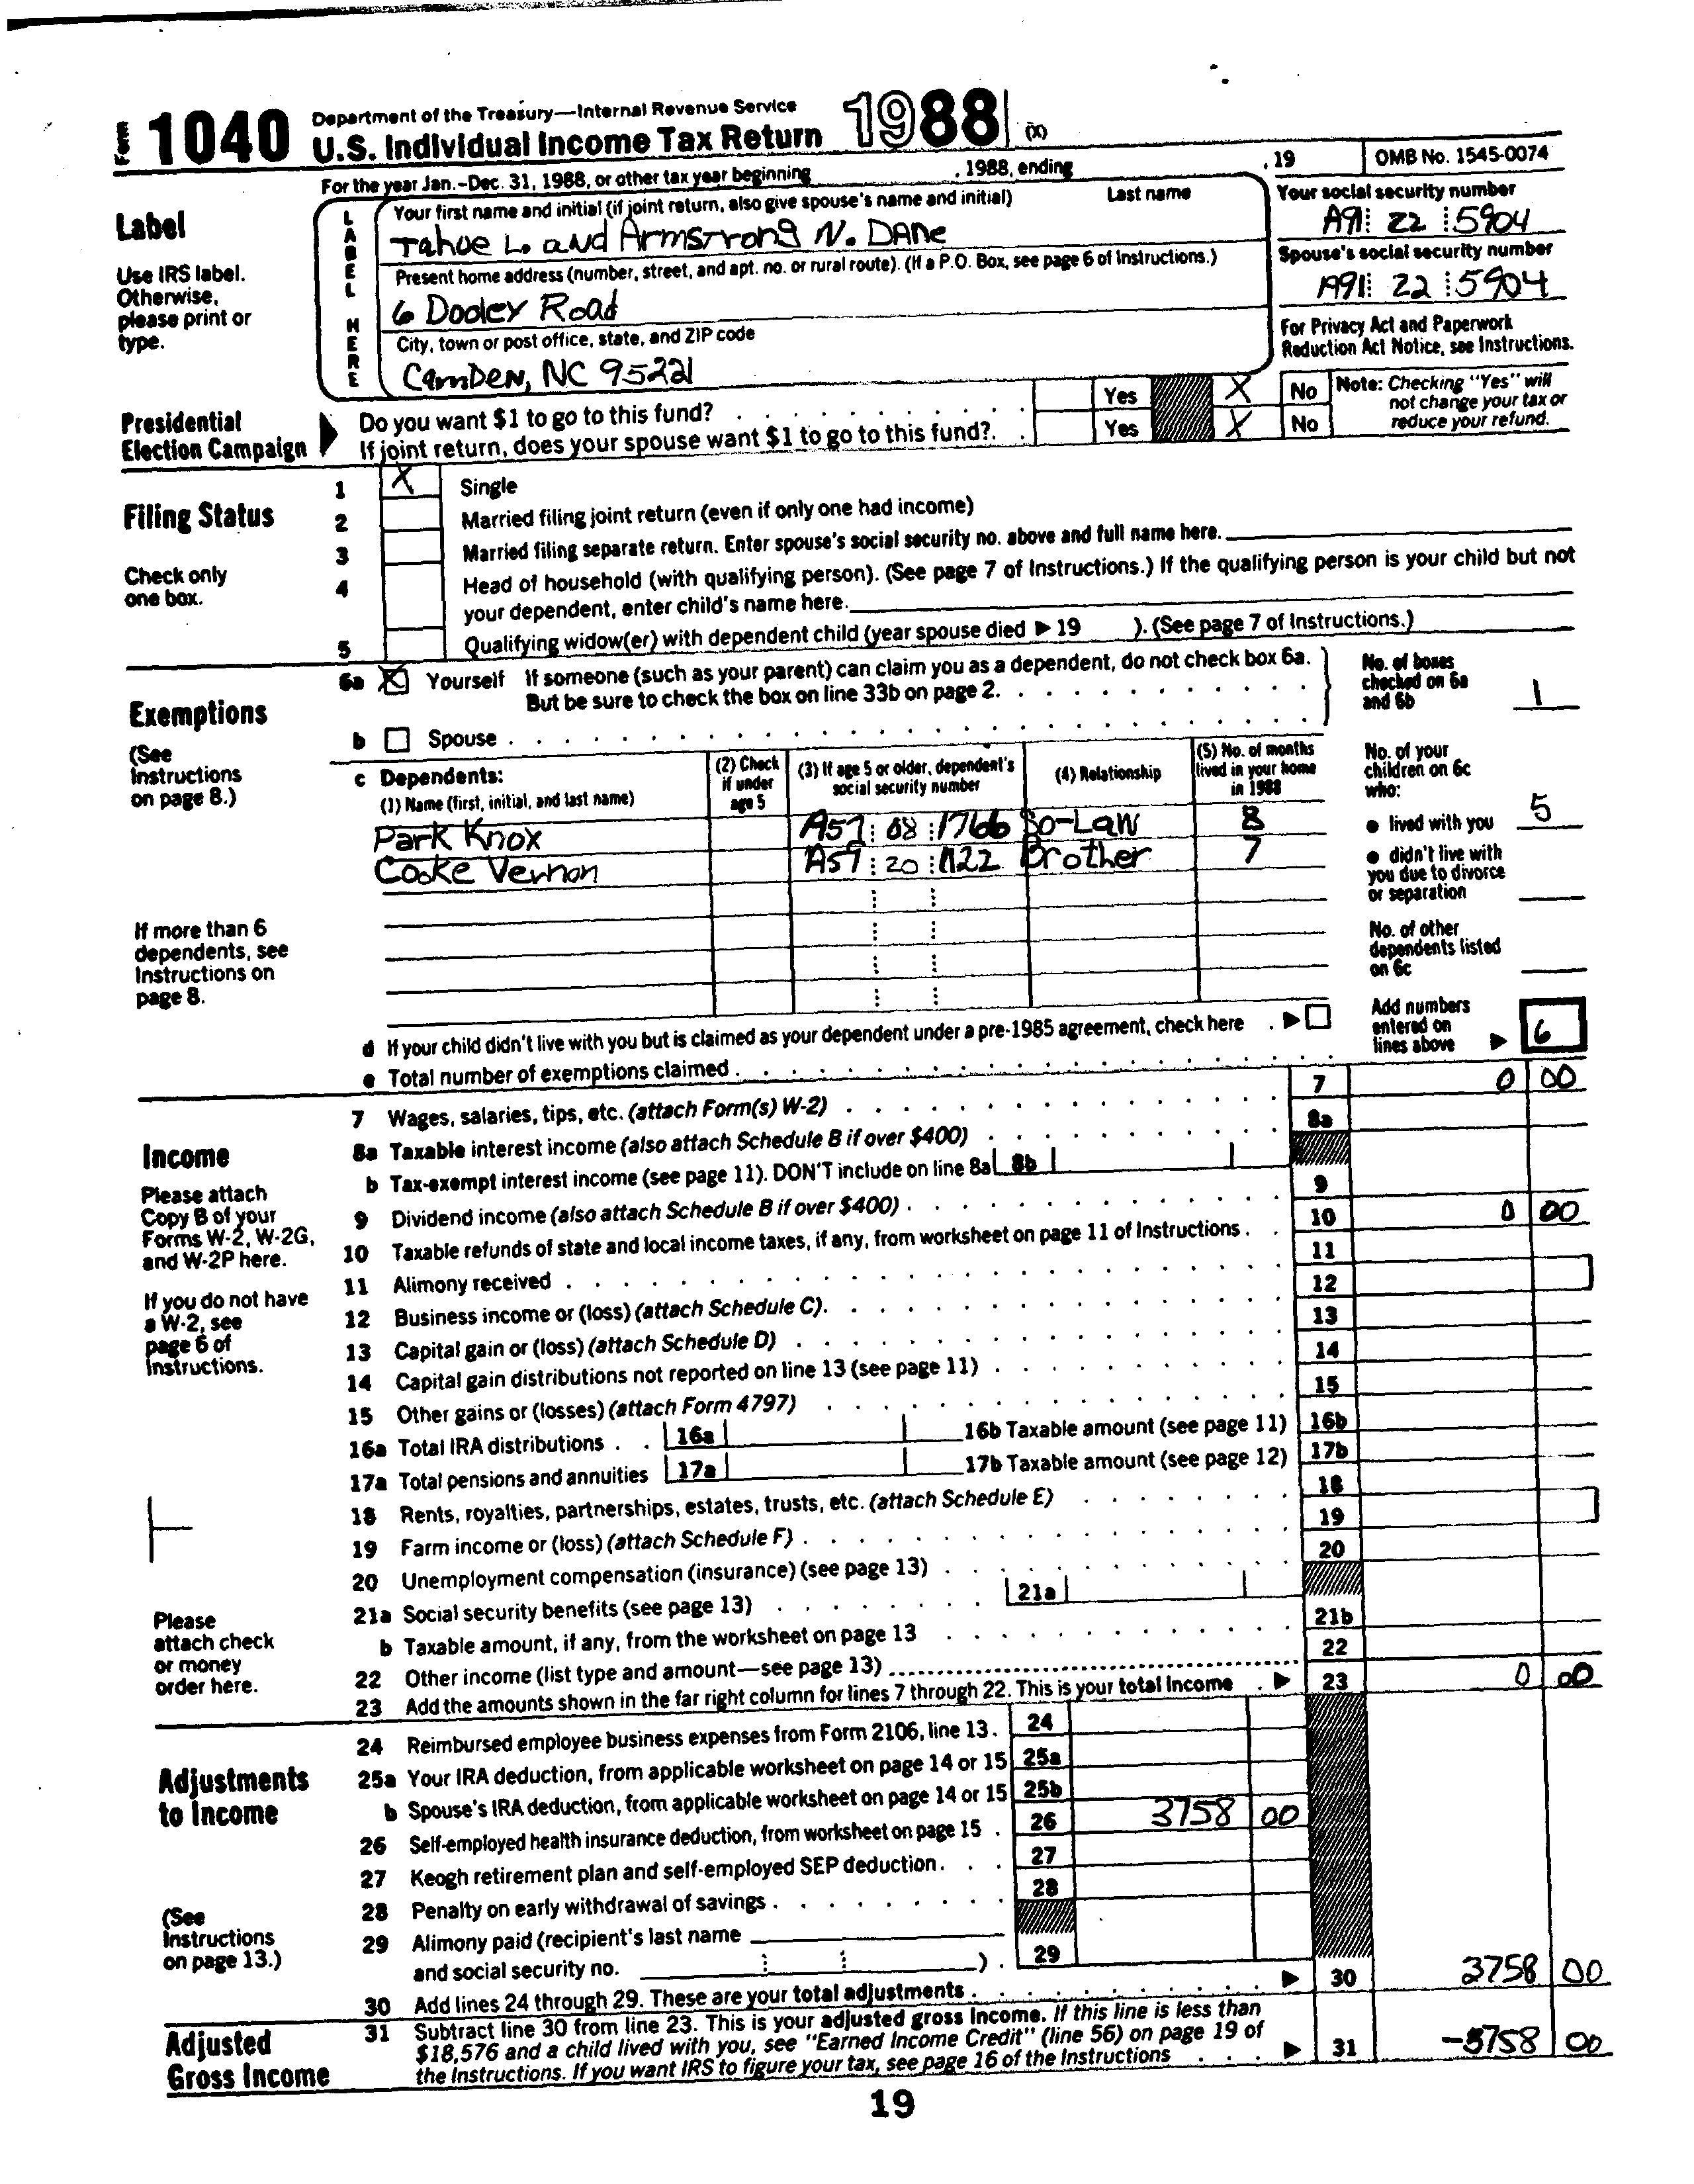 Form 1040 Department of the Treasury—Internal Revenue Service
U.S. Individual Income Tax Return 1988 (X)
For the year Jan.-Dec. 31, 1988, or other tax year beginning , 1988, ending , 19 OMB No. 1545-0074
Label
Use IRS label.
Otherwise,
please print or
type.
LABEL HERE
Your first name and initial (if joint return, also give spouse's name and initial) Last name
Tahoe L. and Armstrong N. Dane
Present home address (number, street, and apt. no. or rural route). (If a P.O. Box, see page 6 of Instructions.)
6 Dooley Road
City, town or post office, state, and ZIP code
Camden, NC 95221
Your social security number
A91 22 5904
Spouse's social security number
A91 22 5904
For Privacy Act and Paperwork
Reduction Act Notice, see Instructions.
Presidential
Election Campaign
Do you want $1 to go to this fund? Yes X No
If joint return, does your spouse want $1 to go to this fund?. Yes X No
Note: Checking "Yes" will
not change your tax or
reduce your refund.
Filing Status
Check only
one box.
1 X Single
2 Married filing joint return (even if only one had income)
3 Married filing separate return. Enter spouse's social security no. above and full name here.
4 Head of household (with qualifying person). (See page 7 of Instructions.) If the qualifying person is your child but not
your dependent, enter child's name here.
5 Qualifying widow(er) with dependent child (year spouse died ▶ 19 ). (See page 7 of Instructions.)
Exemptions
(See
Instructions
on page 8.)
6a X Yourself If someone (such as your parent) can claim you as a dependent, do not check box 6a.
But be sure to check the box on line 33b on page 2.
b Spouse
No. of boxes
checked on 6a
and 6b 1
c Dependents:
(1) Name (first, initial, and last name)
(2) Check
if under
age 5
(3) If age 5 or older, dependent's
social security number
(4) Relationship
(5) No. of months
lived in your home
in 1988
Park Knox A57 08 1766 So-Law 8
Cooke Vernon A59 20 1122 Brother 7
No. of your
children on 6c
who:
● lived with you 5
● didn't live with
you due to divorce
or separation
No. of other
dependents listed
on 6c
If more than 6
dependents, see
Instructions on
page 8.
d If your child didn't live with you but is claimed as your dependent under a pre-1985 agreement, check here . ▶
e Total number of exemptions claimed
Add numbers
entered on
lines above ▶ 6
Income
Please attach
Copy B of your
Forms W-2, W-2G,
and W-2P here.
If you do not have
a W-2, see
page 6 of
Instructions.
Please
attach check
or money
order here.
7 Wages, salaries, tips, etc. (attach Form(s) W-2) 7 0 00
8a Taxable interest income (also attach Schedule B if over $400) 8a
b Tax-exempt interest income (see page 11). DON'T include on line 8a 8b
9 Dividend income (also attach Schedule B if over $400) 9
10 Taxable refunds of state and local income taxes, if any, from worksheet on page 11 of Instructions 10 0 00
11 Alimony received 11
12 Business income or (loss) (attach Schedule C). 12
13 Capital gain or (loss) (attach Schedule D) 13
14 Capital gain distributions not reported on line 13 (see page 11) 14
15 Other gains or (losses) (attach Form 4797) 15
16a Total IRA distributions 16a 16b Taxable amount (see page 11) 16b
17a Total pensions and annuities 17a 17b Taxable amount (see page 12) 17b
18 Rents, royalties, partnerships, estates, trusts, etc. (attach Schedule E) 18
19 Farm income or (loss) (attach Schedule F) 19
20 Unemployment compensation (insurance) (see page 13) 20
21a Social security benefits (see page 13) 21a
b Taxable amount, if any, from the worksheet on page 13 21b
22 Other income (list type and amount—see page 13) 22
23 Add the amounts shown in the far right column for lines 7 through 22. This is your total income ▶ 23 0 00
Adjustments
to Income
(See
Instructions
on page 13.)
24 Reimbursed employee business expenses from Form 2106, line 13. 24
25a Your IRA deduction, from applicable worksheet on page 14 or 15 25a
b Spouse's IRA deduction, from applicable worksheet on page 14 or 15 25b
26 Self-employed health insurance deduction, from worksheet on page 15 26 3758 00
27 Keogh retirement plan and self-employed SEP deduction. 27
28 Penalty on early withdrawal of savings 28
29 Alimony paid (recipient's last name
and social security no. ) 29
30 Add lines 24 through 29. These are your total adjustments ▶ 30 3758 00
Adjusted
Gross Income
31 Subtract line 30 from line 23. This is your adjusted gross income. If this line is less than
$18,576 and a child lived with you, see "Earned Income Credit" (line 56) on page 19 of
the Instructions. If you want IRS to figure your tax, see page 16 of the Instructions ▶ 31 -3758 00
19